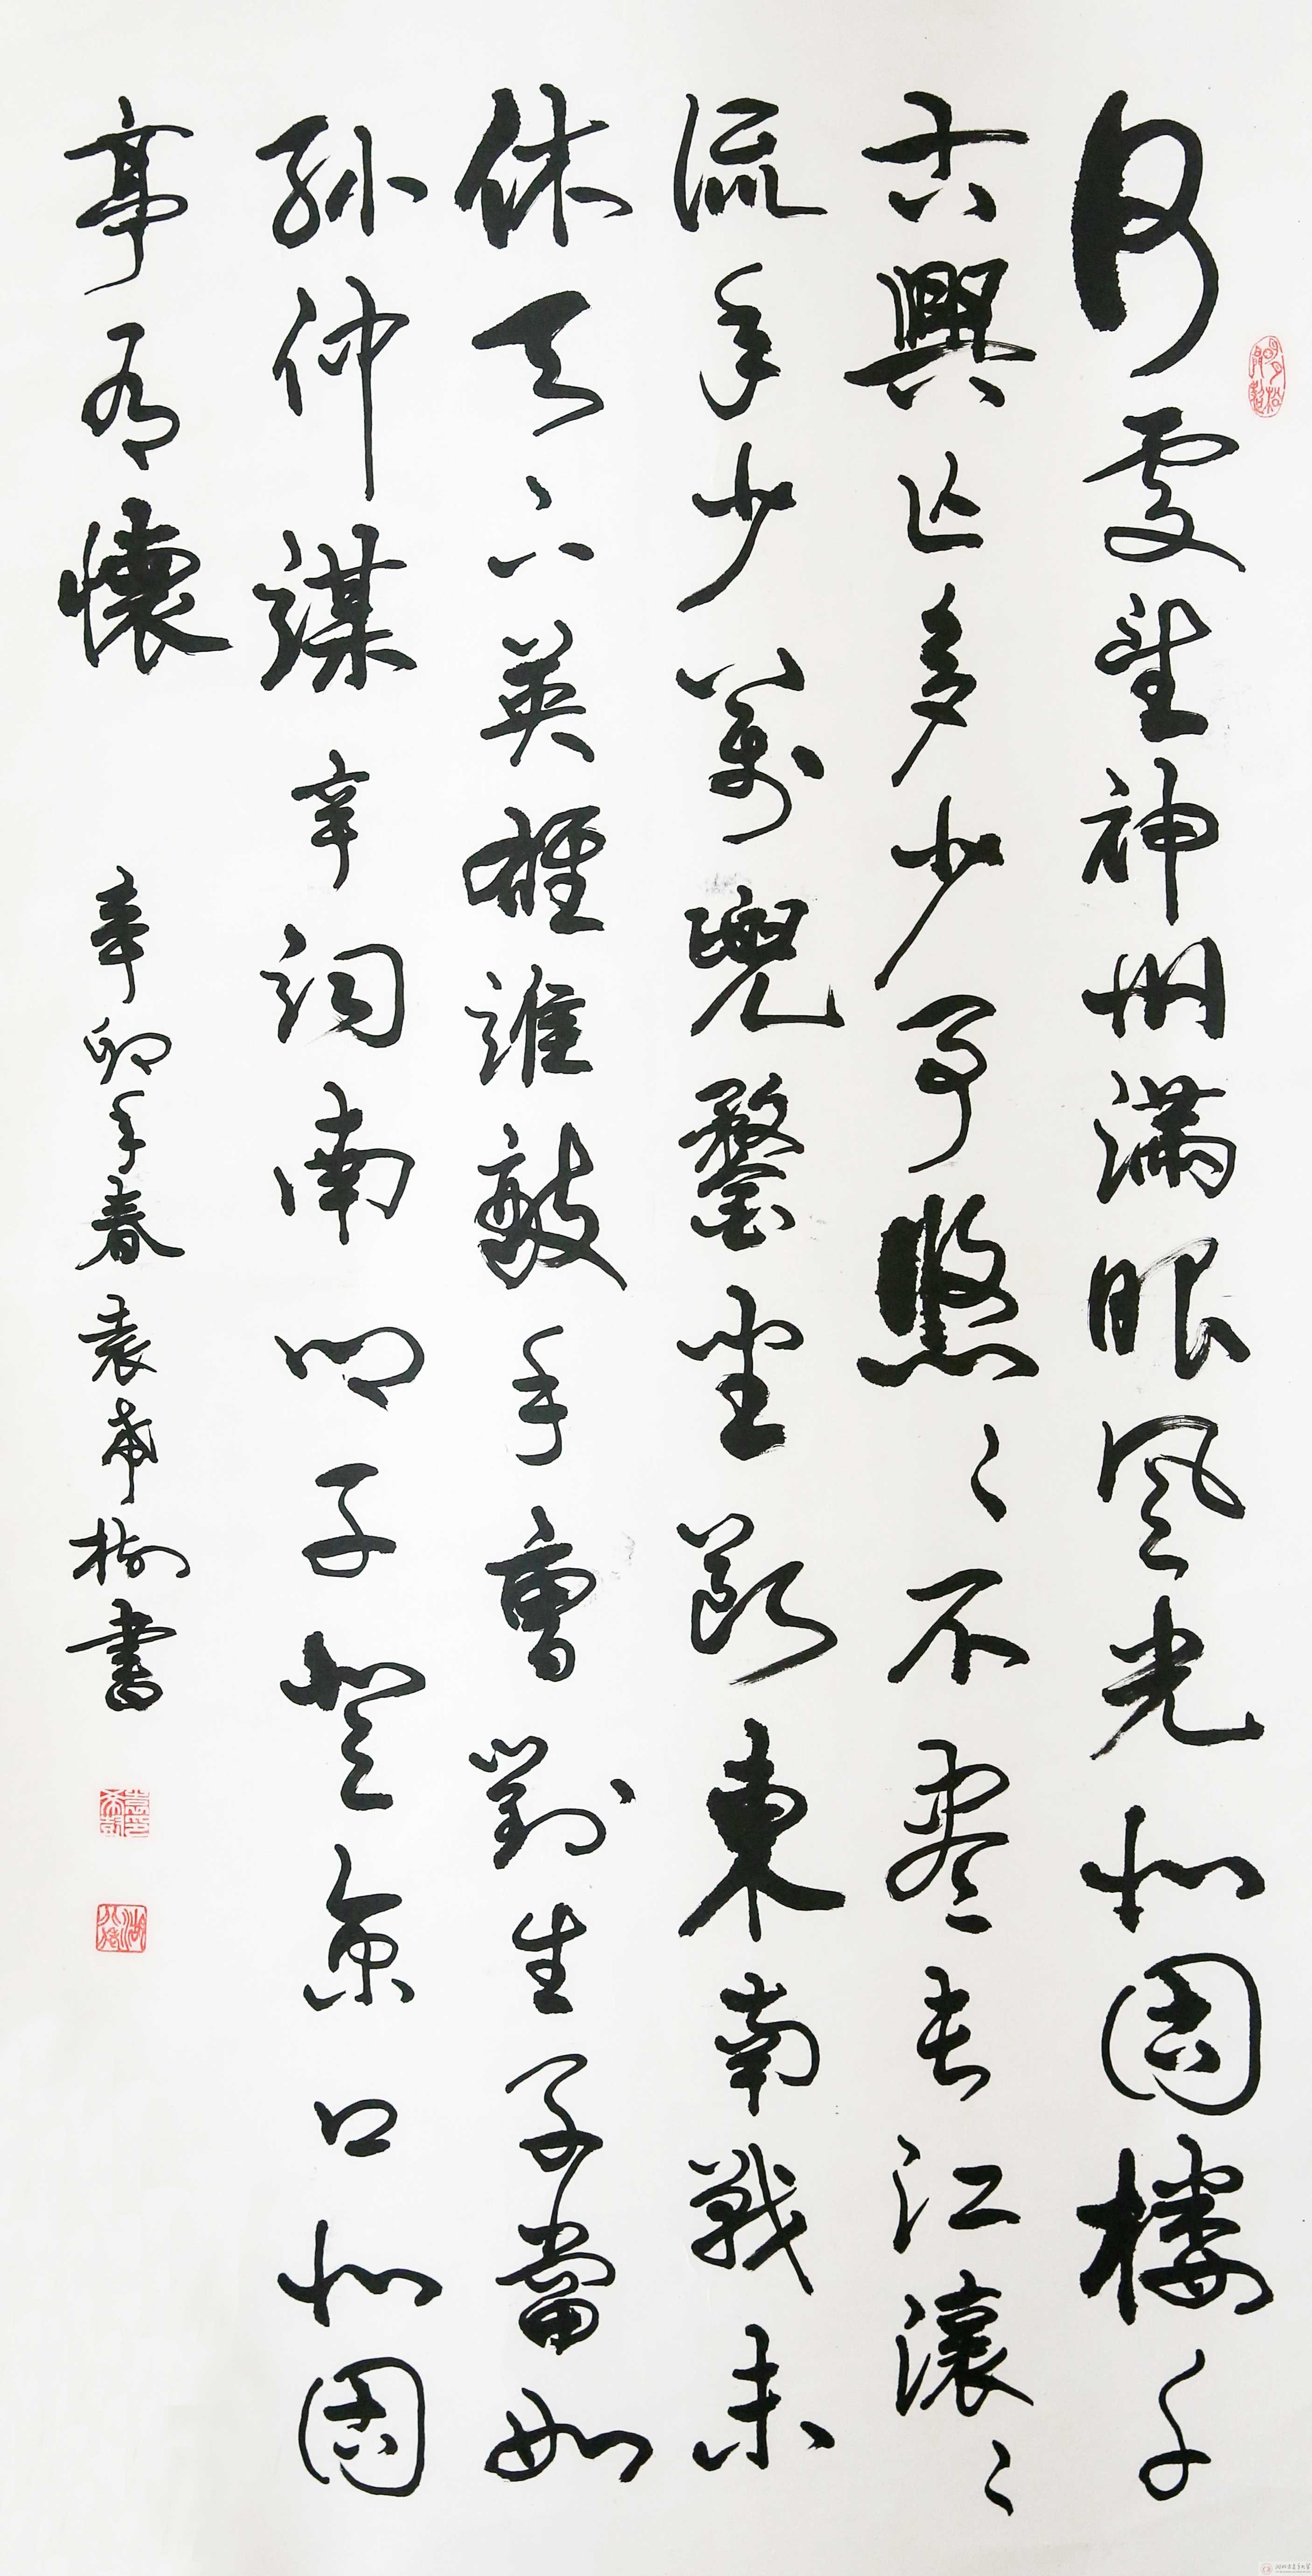 何處望神州滿眼風光北固樓千
古興亡多少事悠〻不盡長江滾〻
流年少萬兜鍪坐斷東南戰未
休天下英雄誰敵手曹劉生子當如
孫仲謀 辛詞南鄉子登京口北固
亭有懷 辛卯年春袁希樹書